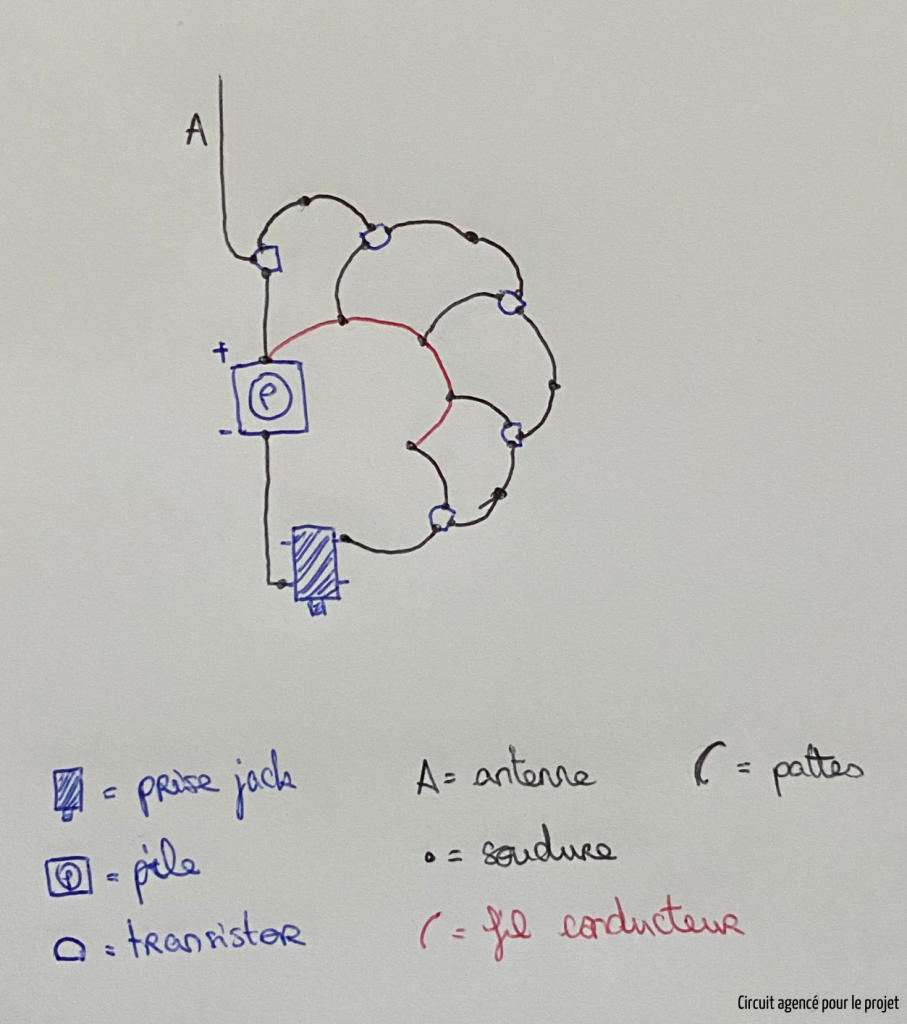 A
+
P
-
= prise jack
A = antenne
= pattes
P = pile
• = soudure
= transistor
= fil conducteur
Circuit agencé pour le projet